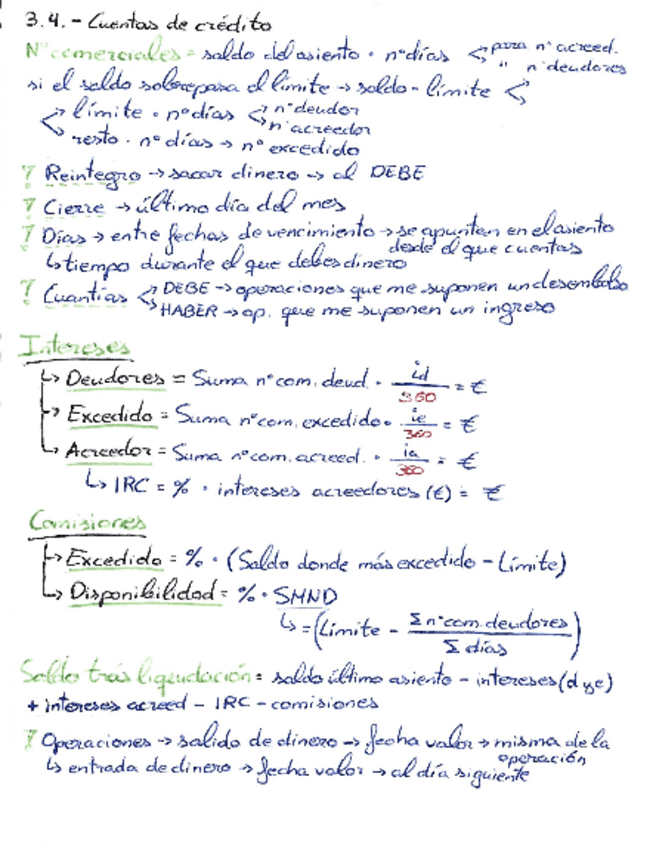 3.4.- Cuentas de crédito
Nº comerciales = saldo del asiento · nº días < para nº acreed.
" nº deudores
si el saldo sobrepasa el límite → saldo - límite <
< límite · nº días < nº deudor
nº acreedor
resto · nº días → nº excedido
! Reintegro → sacar dinero → al DEBE
! Cierre → último día del mes
! Días → entre fechas de vencimiento → se apuntan en el asiento
desde el que cuentas
↳ tiempo durante el que debes dinero
! Cuantías < DEBE → operaciones que me suponen un desembolso
HABER → op. que me suponen un ingreso
Intereses
↳ Deudores = Suma nº com. deud. · id/360 = €
↳ Excedido = Suma nº com. excedido · ie/360 = €
↳ Acreedor = Suma nº com. acreed. · ia/360 = €
↳ IRC = % · intereses acreedores (€) = €
Comisiones
↳ Excedido = % · (Saldo donde más excedido - Límite)
↳ Disponibilidad = % · SMND
↳ = (Límite - Σ nº com. deudores / Σ días)
Saldo trás liquidación = saldo último asiento - intereses (d y e)
+ intereses acreed - IRC - comisiones
! Operaciones → salida de dinero → fecha valor → misma de la
operación
↳ entrada de dinero → fecha valor → al día siguiente